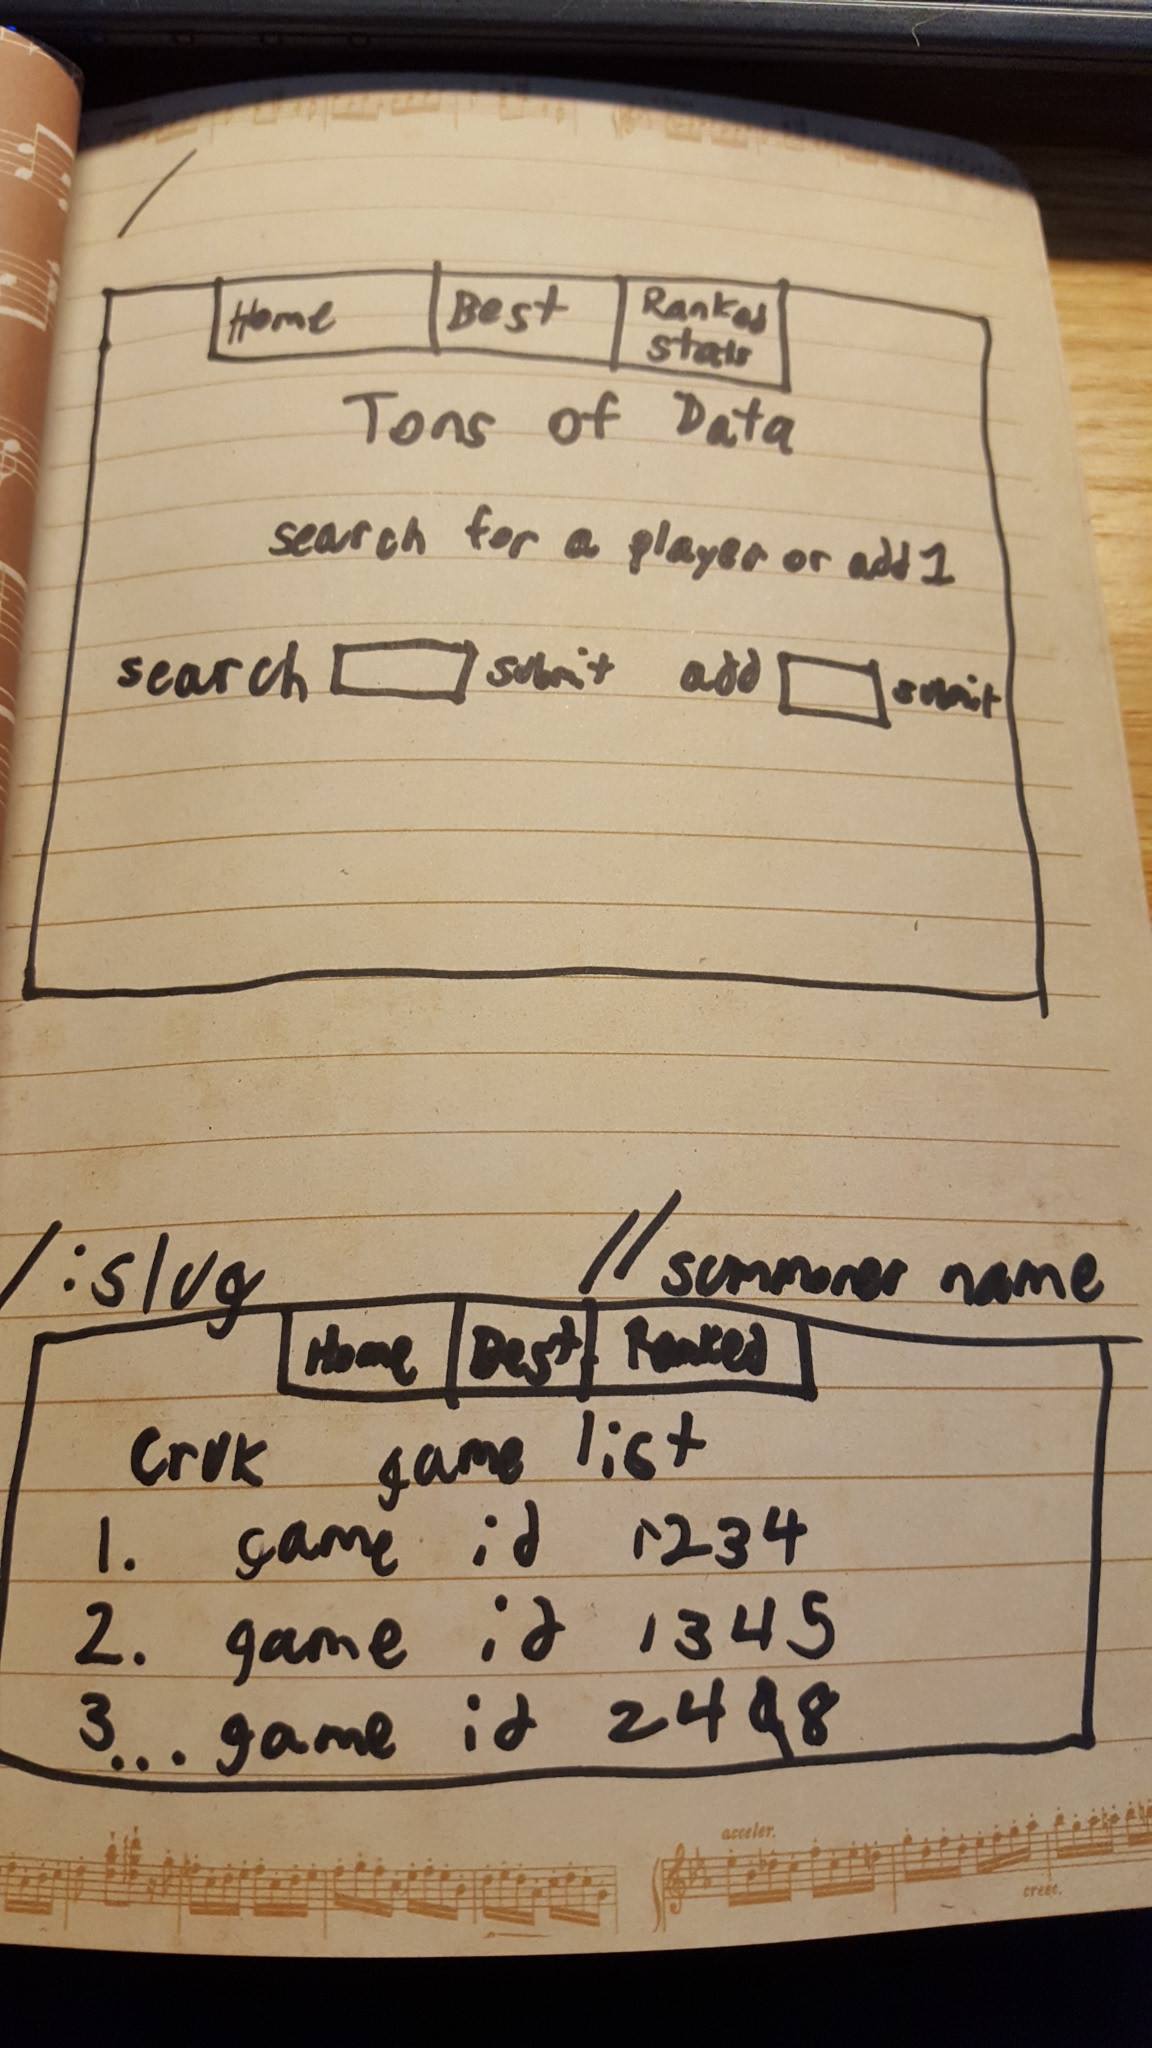 /
Home Best Ranked
stats
Tons of Data
search for a player or add 1
search submit add submit
/:slug // summoner name
Home Best Ranked
Crvk game list
1. game id 1234
2. game id 1345
3... game id 2498
acceler.
cresc.